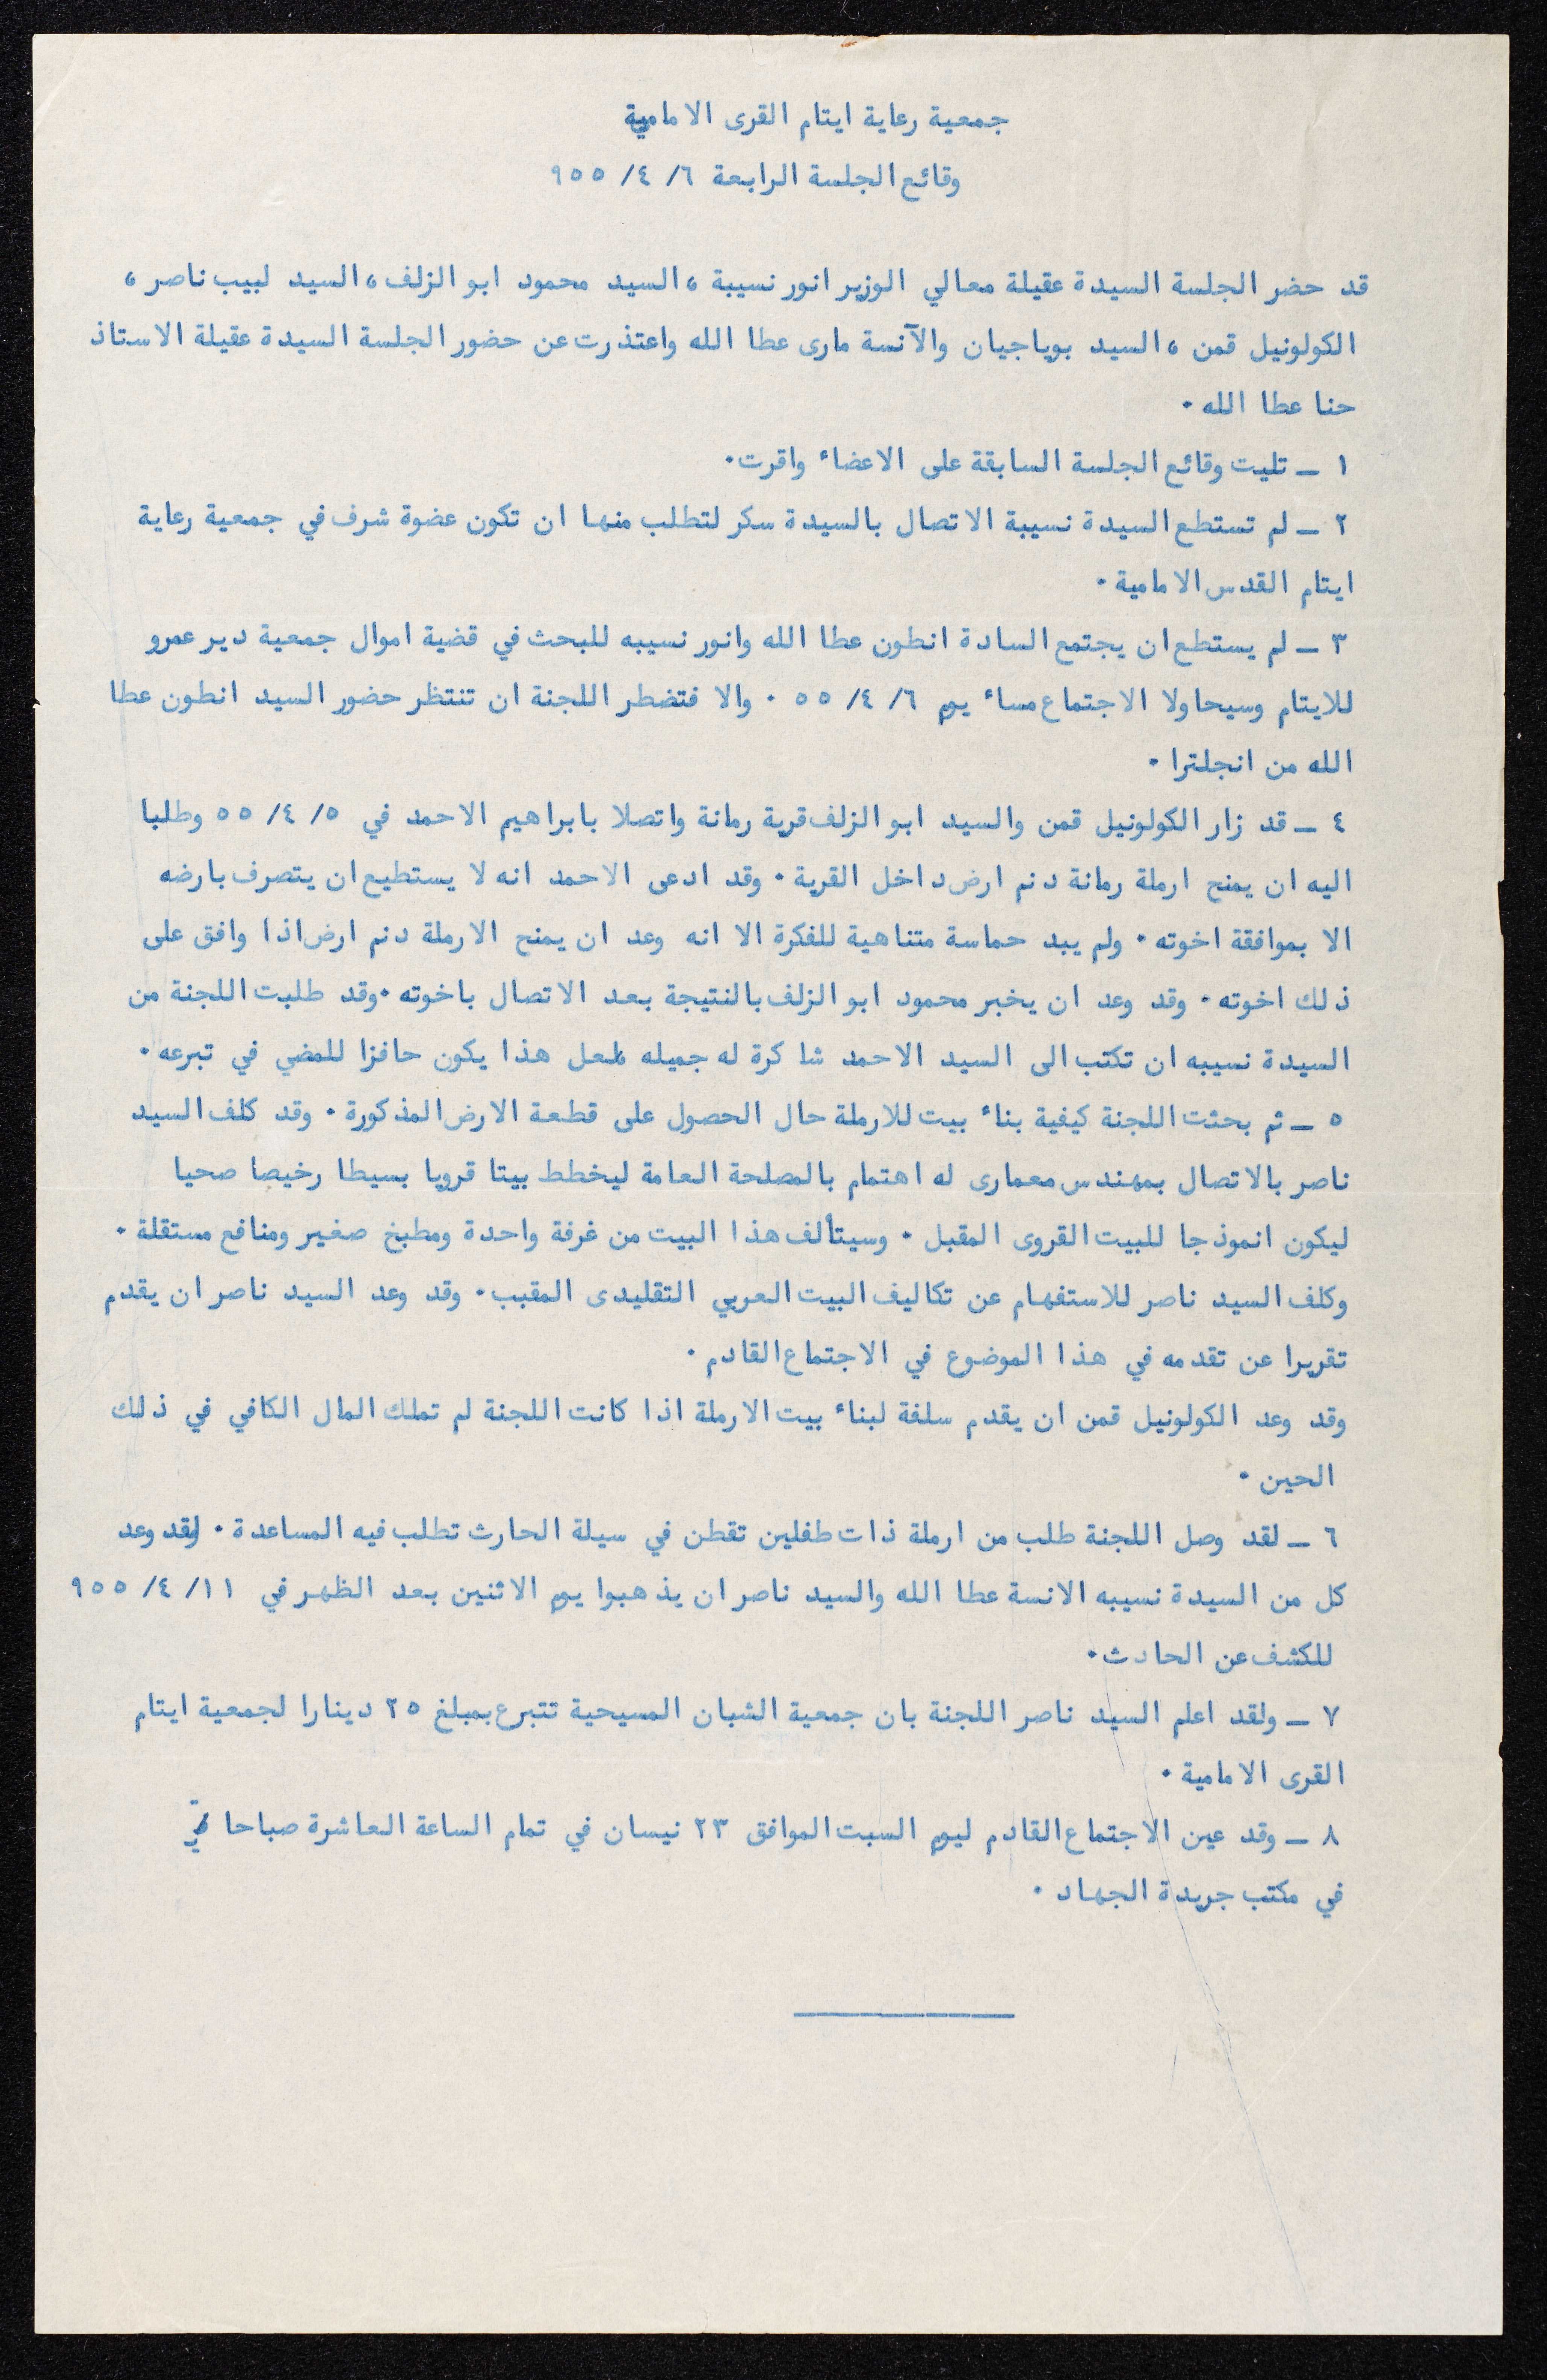 جمعية رعاية ايتام القرى الامامية
وقائع الجلسة الرابعة ٦/ ٤/ ٩٥٥
قد حضر الجلسة السيدة عقيلة معالي الوزير انور نسيبة ، السيد محمود ابو الزلف ، السيد لبيب ناصر ،
الكولونيل قمن ، السيد بوياجيان والآنسة مارى عطا الله واعتذرت عن حضور الجلسة السيدة عقيلة الاستاذ
حنا عطا الله .
١ _ تليت وقائع الجلسة السابقة على الاعضاء واقرت .
٢ _ لم تستطع السيدة نسيبة الاتصال بالسيدة سكر لتطلب منها ان تكون عضوة شرف في جمعية رعاية
ايتام القدس الامامية .
٣ _ لم يستطع ان يجتمع السادة انطون عطا الله وانور نسيبه للبحث في قضية اموال جمعية دير عمرو
للايتام وسيحاولا الاجتماع مساء يوم ٦/ ٤/ ٥٥ . والا فتضطر اللجنة ان تنتظر حضور السيد انطون عطا
الله من انجلترا .
٤ _ قد زار الكولونيل قمن والسيد ابو الزلف قرية رمانة واتصلا بابراهيم الاحمد في ٥/ ٤/ ٥٥ وطلبا
اليه ان يمنح ارملة رمانة دنم ارض داخل القرية . وقد ادعى الاحمد انه لا يستطيع ان يتصرف بارضه
الا بموافقة اخوته . ولم يبد حماسة متناهية للفكرة الا انه وعد ان يمنح الارملة دنم ارض اذا وافق على
ذلك اخوته . وقد وعد ان يخبر محمود ابو الزلف بالنتيجة بعد الاتصال باخوته . وقد طلبت اللجنة من
السيدة نسيبه ان تكتب الى السيد الاحمد شاكرة له جميله لعل هذا يكون حافزا للمضي في تبرعه .
٥ _ ثم بحثت اللجنة كيفية بناء بيت للارملة حال الحصول على قطعة الارض المذكورة . وقد كلف السيد
ناصر بالاتصال بمهندس معمارى له اهتمام بالمصلحة العامة ليخطط بيتا قرويا بسيطا رخيصا صحيا
ليكون انموذجا للبيت القروى المقبل . وسيتألف هذا البيت من غرفة واحدة ومطبخ صغير ومنافع مستقلة .
وكلف السيد ناصر للاستفهام عن تكاليف البيت العربي التقليدى المقبب . وقد وعد السيد ناصر ان يقدم
تقريرا عن تقدمه في هذا الموضوع في الاجتماع القادم .
وقد وعد الكولونيل قمن ان يقدم سلفة لبناء بيت الارملة اذا كانت اللجنة لم تملك المال الكافي في ذلك
الحين .
٦ _ لقد وصل اللجنة طلب من ارملة ذات طفلين تقطن في سيلة الحارث تطلب فيه المساعدة . وقد وعد
كل من السيدة نسيبه الانسة عطا الله والسيد ناصر ان يذهبوا يوم الاثنين بعد الظهر في ١١/ ٤/ ٩٥٥
للكشف عن الحادث .
٧ _ ولقد اعلم السيد ناصر اللجنة بان جمعية الشبان المسيحية تتبرع بمبلغ ٢٥ دينارا لجمعية ايتام
القرى الامامية .
٨ _ وقد عين الاجتماع القادم ليوم السبت الموافق ٢٣ نيسان في تمام الساعة العاشرة صباحا
في مكتب جريدة الجهاد .